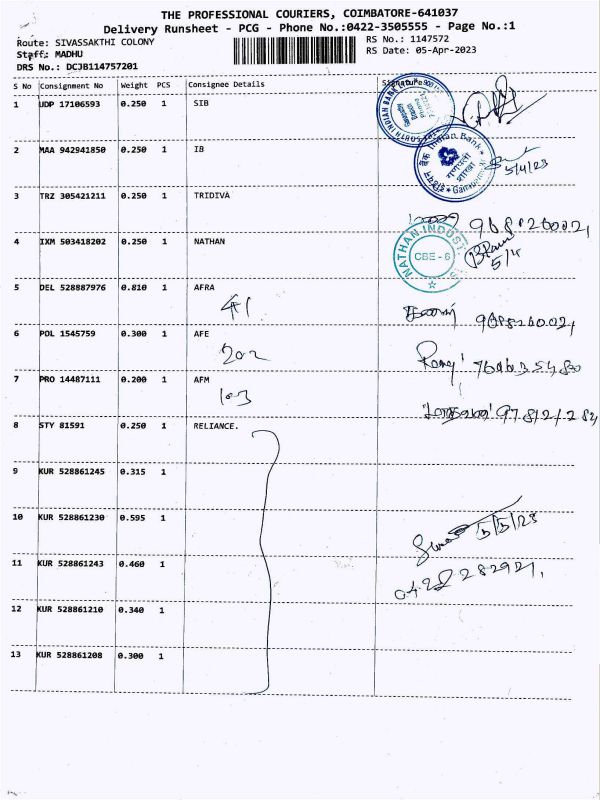 THE PROFESSIONAL COURIERS, COIMBATORE-641037
Delivery Runsheet - PCG - Phone No.:0422-3505555 - Page No.:1
Route: SIVASSAKTHI COLONY
RS No.: 1147572
Staff: MADHU
RS Date: 05-Apr-2023
DRS No.: DCJB114757201
S No Consignment No Weight PCS Consignee Details Signature
1 UDP 17106593 0.250 1 SIB
2 MAA 942941850 0.250 1 IB
Indian Bank
5/4/23
3 TRZ 305421211 0.250 1 TRIDIVA
4 IXM 503418202 0.250 1 NATHAN
NATHAN INDUST
CBE - 6
5/4
5 DEL 528887976 0.810 1 AFRA
41
6 POL 1545759 0.300 1 AFE
202
7 PRO 14487111 0.200 1 AFM
103
8 STY 81591 0.250 1 RELIANCE.
9 KUR 528861245 0.315 1
10 KUR 528861230 0.595 1
5/5/23
11 KUR 528861243 0.460 1
12 KUR 528861210 0.340 1
13 KUR 528861208 0.300 1